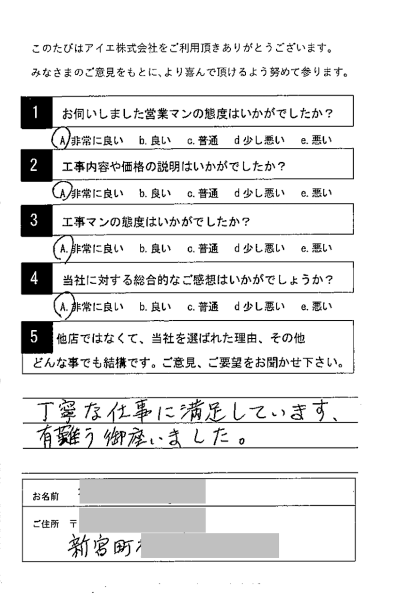 このたびはアイエ株式会社をご利用頂きありがとうございます。
みなさまのご意見をもとに、より喜んで頂けるよう努めて参ります。
1 お伺いしました営業マンの態度はいかがでしたか？
A.非常に良い b.良い c.普通 d少し悪い e.悪い
2 工事内容や価格の説明はいかがでしたか？
A.非常に良い b.良い c.普通 d少し悪い e.悪い
3 工事マンの態度はいかがでしたか？
A.非常に良い b.良い c.普通 d少し悪い e.悪い
4 当社に対する総合的なご感想はいかがでしょうか？
A.非常に良い b.良い c.普通 d少し悪い e.悪い
5 他店ではなくて、当社を選ばれた理由、その他
どんな事でも結構です。ご意見、ご要望をお聞かせ下さい。
丁寧な仕事に満足しています、
有難う御座いました。
お名前
ご住所 〒
新宮町